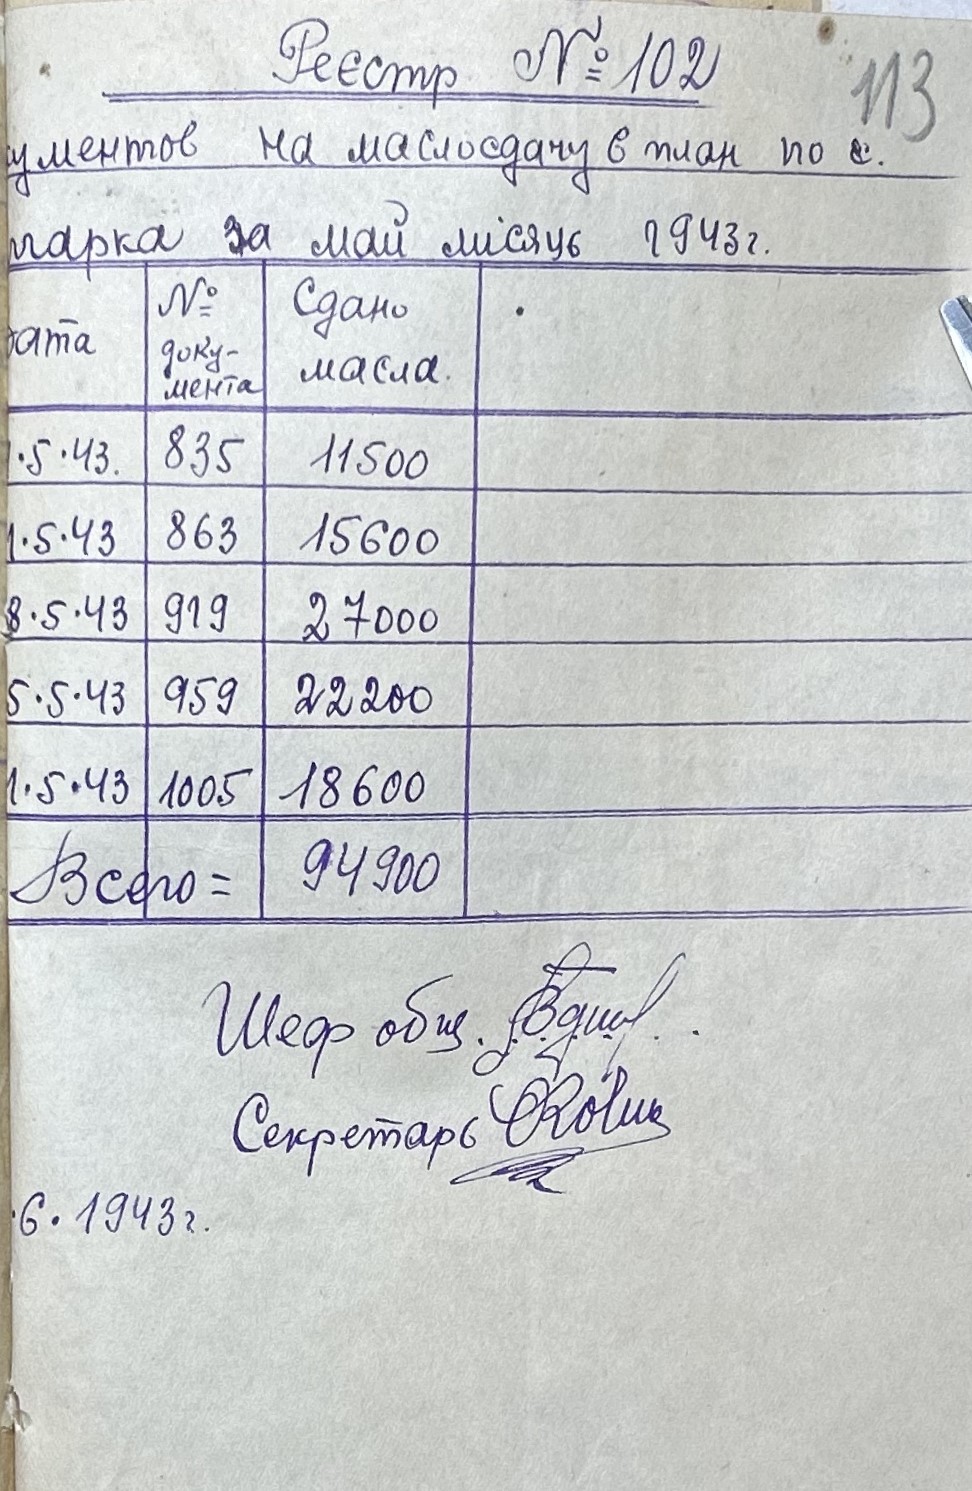 Реєстр № 102
113
ументов на маслосдачу в план по с.
парка за май місяць 1943г.
дата
№ доку-
мента
Сдано
масла.
1.5.43. 835 11500
1.5.43 863 15600
8.5.43 919 27000
5.5.43 959 22200
1.5.43 1005 18600
Всего = 94900
Шеф общ.
Секретарь
.6.1943г.